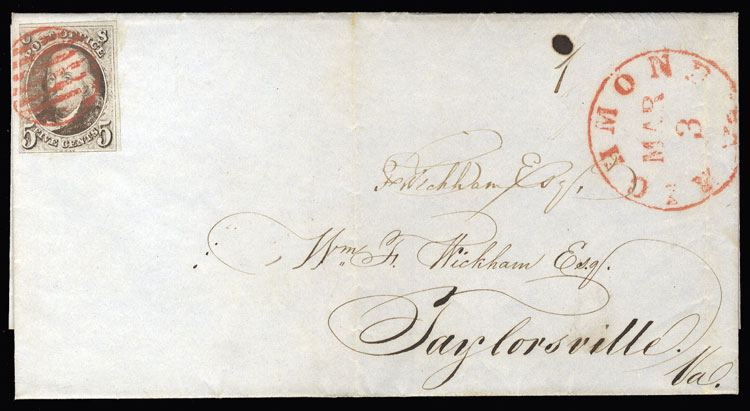 POST OFFICE
U S
5 FIVE CENTS 5
RICHMOND Va.
MAR
3
Wickham Esq.
Wm. F. Wickham Esq.
Taylorsville.
Va.